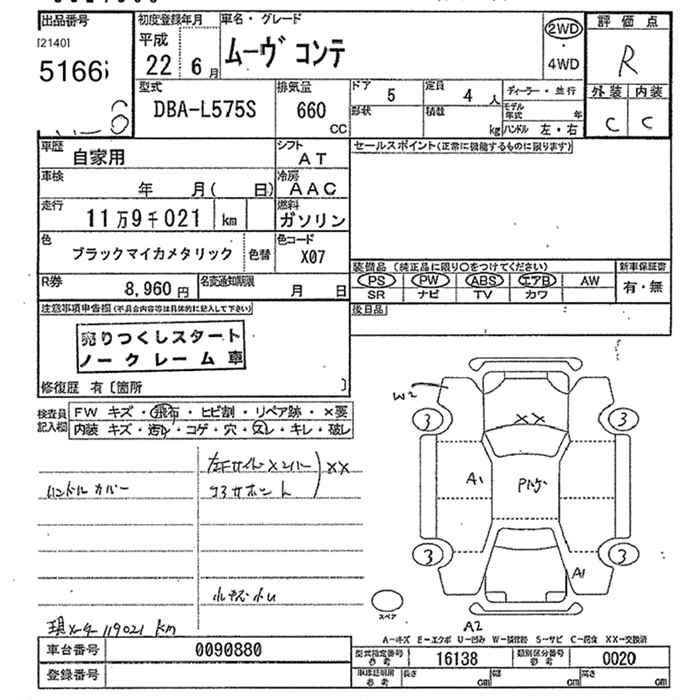 出品番号
初度登録年月
車名・グレード
評価点
[2140]
平成
22 年 6 月
ムーヴ コンテ
2WD
・
4WD
R
5166
型式
DBA-L575S
排気量
660
CC
ドア
5
定員
4 人
ディーラー・並行
モデル年式 年
外装 内装
C C
形状
積載 kg
ハンドル 左・右
車歴
自家用
シフト
AT
セールスポイント(正常に機能するものに限ります)
車検
年 月( 日)
冷房
AAC
走行
11万9千021 km
燃料
ガソリン
色
ブラックマイカメタリック
色替
色コード
X07
装備品 (純正品に限り○をつけてください)
新車保証書
R券
8,960 円
名変通知期限
月 日
PS PW ABS エアB AW
有・無
SR ナビ TV カワ
注意事項申告欄(不具合内容等は具体的に記入して下さい)
後日品
売りつくしスタート
ノークレーム車
修復歴 有 [箇所 ]
検査員記入欄
FW キズ・飛石・ヒビ割・リペア跡・×要
内装 キズ・汚れ・コゲ・穴・スレ・キレ・破レ
W2
3
3
XX
左Fサイドメンバー
XX
ハンドルカバー
A1
3
3
A1
スペア
A2
現メーター 119021 km
A-キズ E-エクボ U-凹み W-補修跡 S-サビ C-腐食 XX-交換済
車台番号
0090880
型式指定番号
参考
16138
類別区分番号
参考
0020
登録番号
車庫証明用
参考
長さ cm
幅 cm
高さ cm